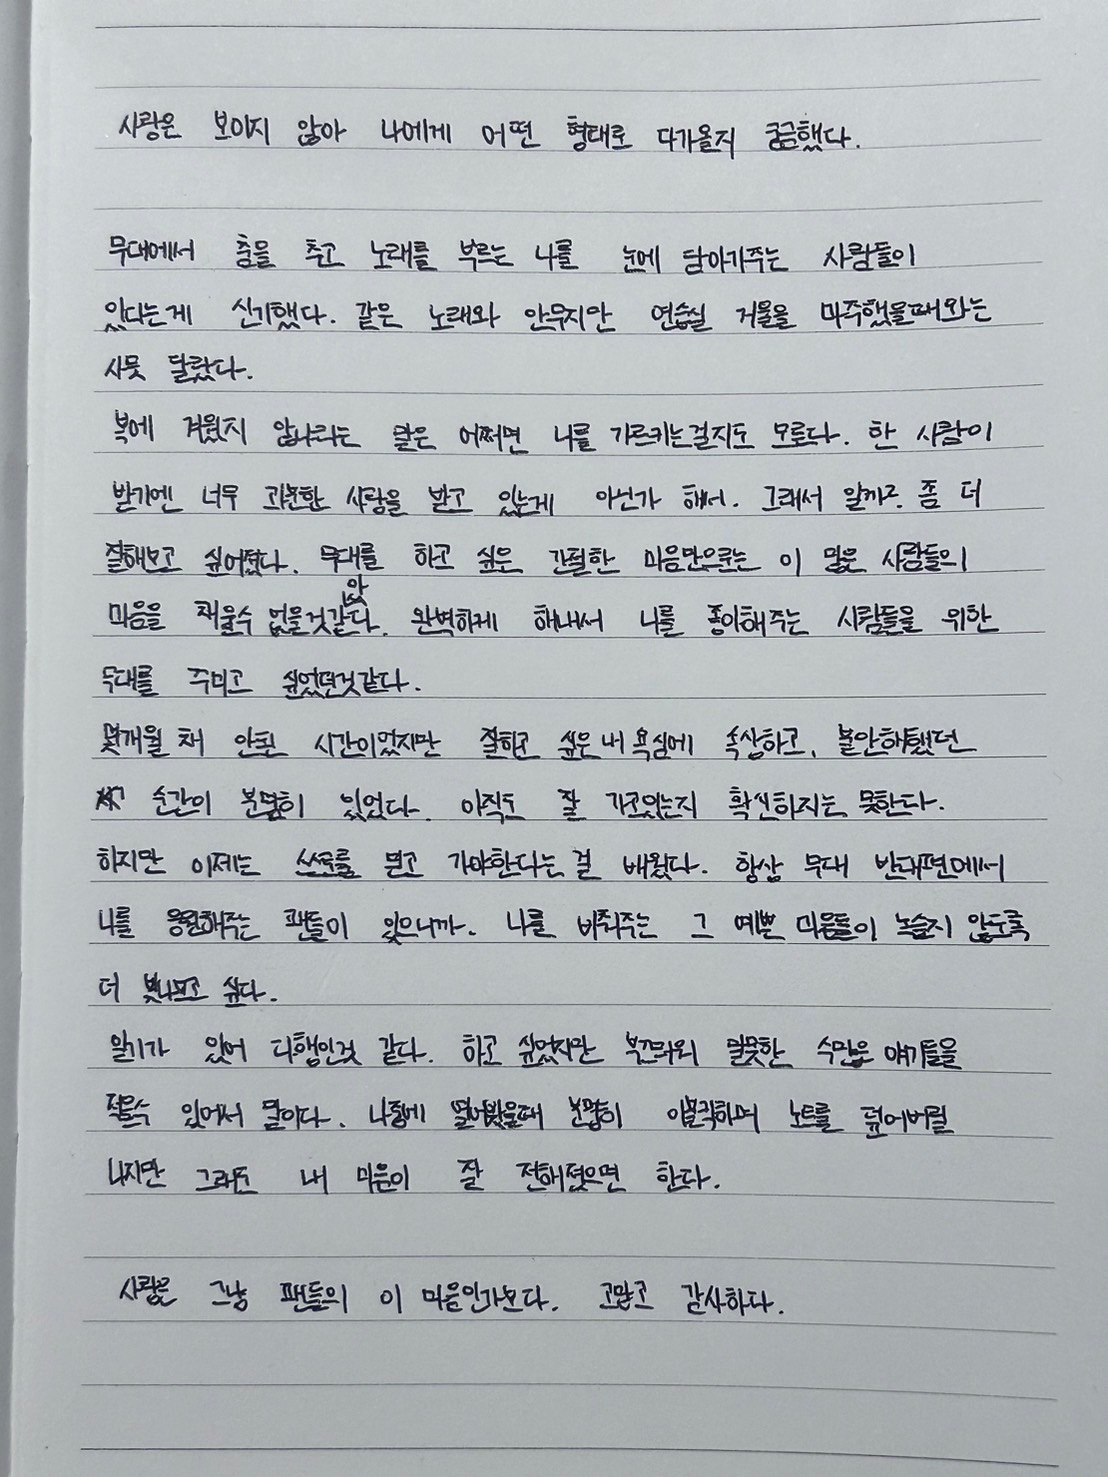 사랑은 보이지 않아 나에게 어떤 형태로 다가올지 궁금했다.
무대에서 춤을 추고 노래를 부르는 나를 눈에 담아가주는 사람들이
있다는게 신기했다. 같은 노래와 안무지만 연습실 거울을 마주했을때와는
사뭇 달랐다.
복에 겨웠지 않나라는 말은 어쩌면 나를 가르키는걸지도 모른다. 한 사람이
받기엔 너무 과분한 사랑을 받고 있는게 아닌가 해서. 그래서 일까? 좀 더
잘해보고 싶어졌다. 무대를 하고 싶은 간절한 마음만으로는 이 많은 사람들의
마음을 채울수 없을것같았다. 완벽하게 해내서 나를 좋아해주는 사람들을 위한
무대를 꾸미고 싶었던것같다.
몇개월 채 안된 시간이었지만 잘하고 싶은 내 욕심에 속상하고, 불안해했던
순간이 분명히 있었다. 아직도 잘 가고있는지 확신하지는 못한다.
하지만 이제는 스스로를 믿고 가야한다는 걸 배웠다. 항상 무대 반대편에서
나를 응원해주는 팬들이 있으니까. 나를 비춰주는 그 예쁜 마음들이 녹슬지 않도록
더 빛나보고 싶다.
일기가 있어 다행인것 같다. 하고 싶었지만 부끄러워 말못한 수많은 얘기들을
적을수 있어서 말이다. 나중에 열어봤을때 분명히 이불킥하며 노트를 덮어버릴
나지만 그래도 내 마음이 잘 전해졌으면 한다.
사랑은 그냥 팬들의 이 마음인가보다. 고맙고 감사하다.